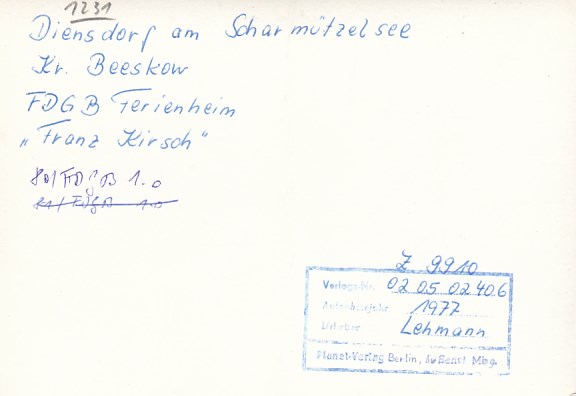 1231
Diensdorf am Scharmützelsee
Kr. Beeskow
FDGB Ferienheim
„Franz Kirsch"
80/FDGB 1.0
81/FDGB 1.0
Z 9910
Verlags-Nr. 02 05 02 406
Aufnahmejahr 1977
Urheber Lehmann
Planet-Verlag Berlin,